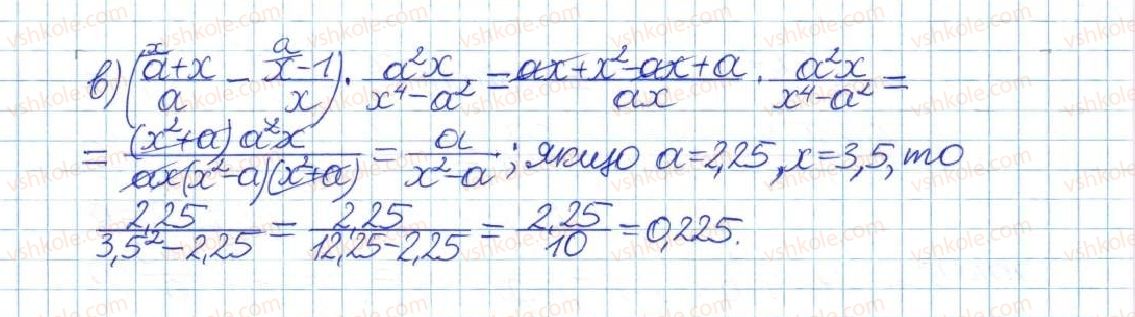 в) (x/(a+x)/a - a/(x-1)/x) · a²x/(x⁴-a²) = (ax+x²-ax+a)/ax · a²x/(x⁴-a²) =
= (x²+a)a²x/(ax(x²-a)(x²+a)) = a/(x²-a); якщо a=2,25, x=3,5, то
2,25/(3,5²-2,25) = 2,25/(12,25-2,25) = 2,25/10 = 0,225.